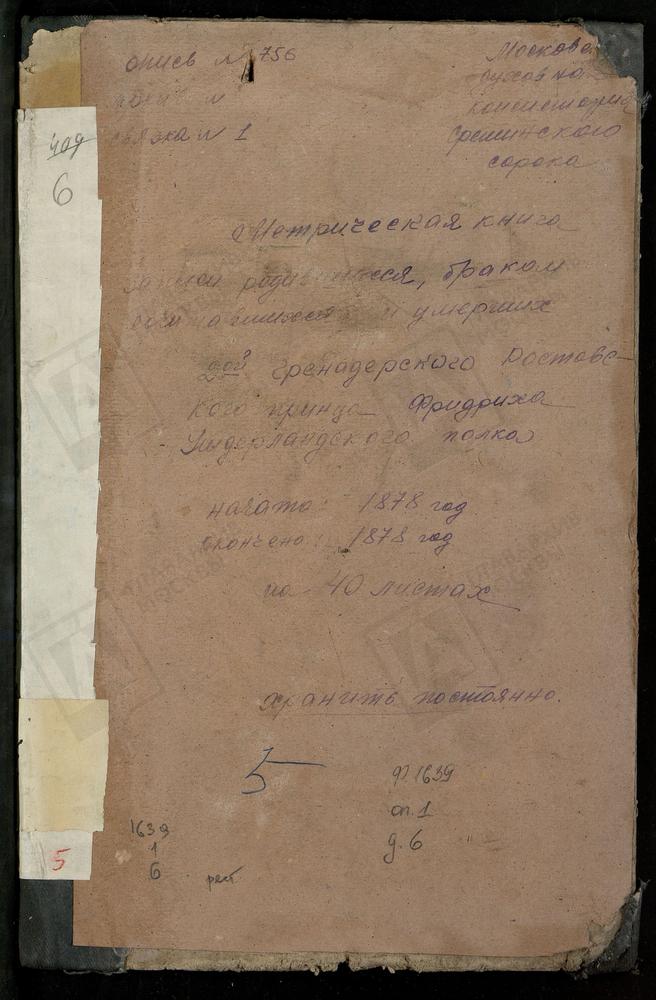 опись № 756
Московс
духовно
консистория
связка № 1
Пресненского
сорока
409
6
Метрическая книга
записи родившихся, браком
сочетавшихся и умерших
2ой гренадерского Ростовс-
кого принца Фридриха
Нидерландского полка
начато: 1878 год
окончено: 1878 год
на 40 листах
хранить постоянно.
5
ф. 1639
оп. 1
д. 6
1639
1
6
рест
5
ГЛАВАРХИВ
МОСКВЫ